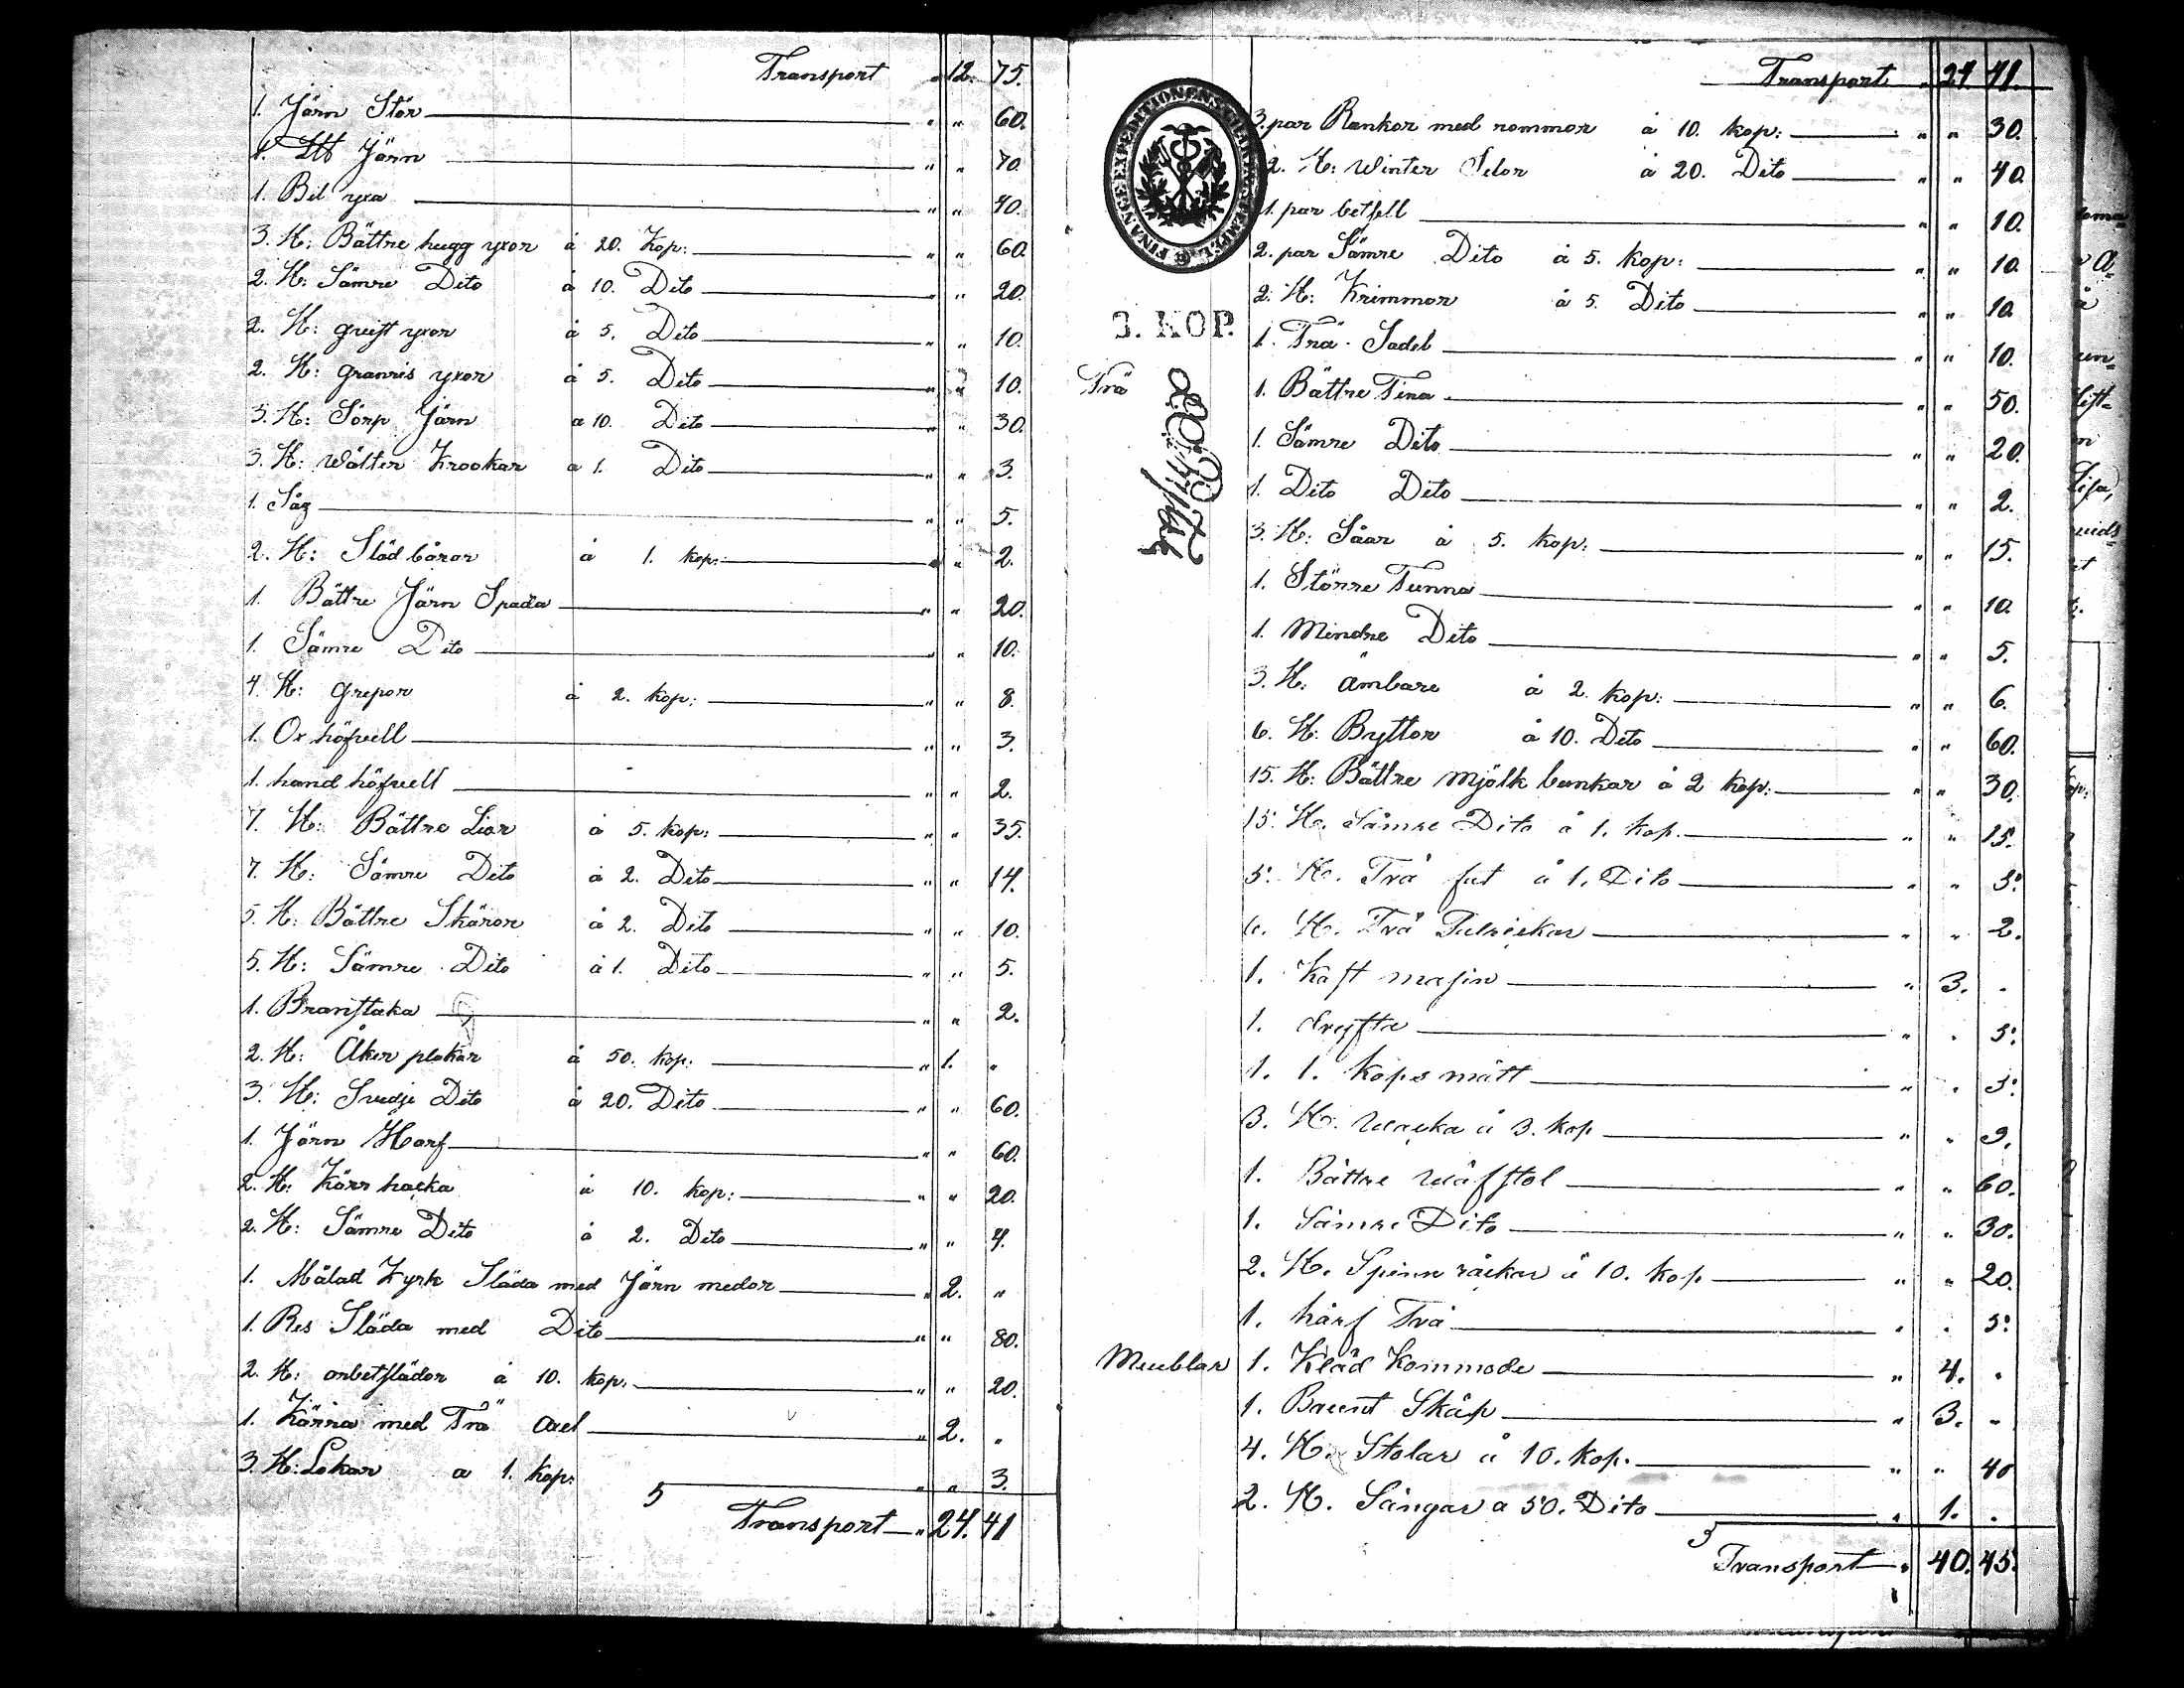 Transport " 12. 75.
1. Järn Stör " " 60.
1. Järn " " 70.
1. Bil yxa " " 40.
3. St: Bättre hugg yxor à 20. Kop: " " 60.
2. St: Sämre Dito à 10. Dito " " 20.
2. St: yxor à 5. Dito " " 10.
2. St: granris yxor à 5. Dito " " 10.
3. St: Sörp Järn a 10. Dito " " 30.
3. St: wälter Krookar a 1. Dito " " 3.
1. Såg " " 5.
2. St: Slåd båror à 1. kop: " " 2.
1. Bättre Järn Spada " " 20.
1. Sämre Dito " " 10.
4. St: grepor à 2. kop: " " 8.
1. Ox höfvell " " 3.
1. hand höfvell " " 2.
7. St: Bättre Liar à 5. kop: " " 35.
7. St: Sämre Dito à 2. Dito " " 14.
5. St: Bättre Skäror à 2. Dito " " 10.
5. St: Sämre Dito à 1. Dito " " 5.
1. Branstaka " " 2.
2. St: Åker plokar à 50. kop: " 1. "
3. St: Svedje Dito à 20. Dito " " 60.
1. Järn Harf " " 60.
2. St: Kärr hacka à 10. kop: " " 20.
2. St: Sämre Dito à 2. Dito " " 4.
1. Målad Kyrk Släda med Järn medor " 2. "
1. Res Släda med Dito " " 80.
2. St: arbetslädor à 10. kop. " " 20.
1. Kärra med Trä axel " 2. "
3. St: Lokar a 1. kop: " " 3.
5
Transport " 24. 41
FINANCEEXPEDITIONENS
3. KOP.
Transport " 24. 41.
3. par Rankor med rommor à 10. kop: " " 30.
2. St: Winter Selor à 20. Dito " " 40.
1. par betsell " " 10.
2. par Sämre Dito à 5. kop: " " 10.
2. St: Krimmor à 5. Dito " " 10.
1. Trä Sadel " " 10.
Trä 1. Bättre Tina " " 50.
1. Sämre Dito " " 20.
1. Dito Dito " " 2.
3. St: Såar à 5. kop: " " 15.
1. Större Tunna " " 10.
1. Mindre Dito " " 5.
3. St: ämbare à 2 kop: " " 6.
6. St: Byttor à 10. Dito " " 60.
15. St: Bättre mjölk bunkar à 2 kop: " " 30.
15. St. Sämre Dito à 1. kop. " " 15.
5. St. Trä fat à 1. Dito " " 5.
St. Trä " " 2.
1. Kast masin " 3. "
1. dryfta " " 5.
1. 1. kaps mått " " 5.
3. St. wacka à 3. kop " " 9.
1. Bättre wäfstol " " 60.
1. Sämre Dito " " 30.
2. St. Spinn råckar à 10. kop " " 20.
1. härf Trä " " 5.
Meublar 1. Kläd Kommode " 4. "
1. Brunt Skåp " 3. "
4. St. Stolar à 10. kop. " " 40
2. St. Sängar a 50. Dito " 1. "
5
Transport " 40. 45.